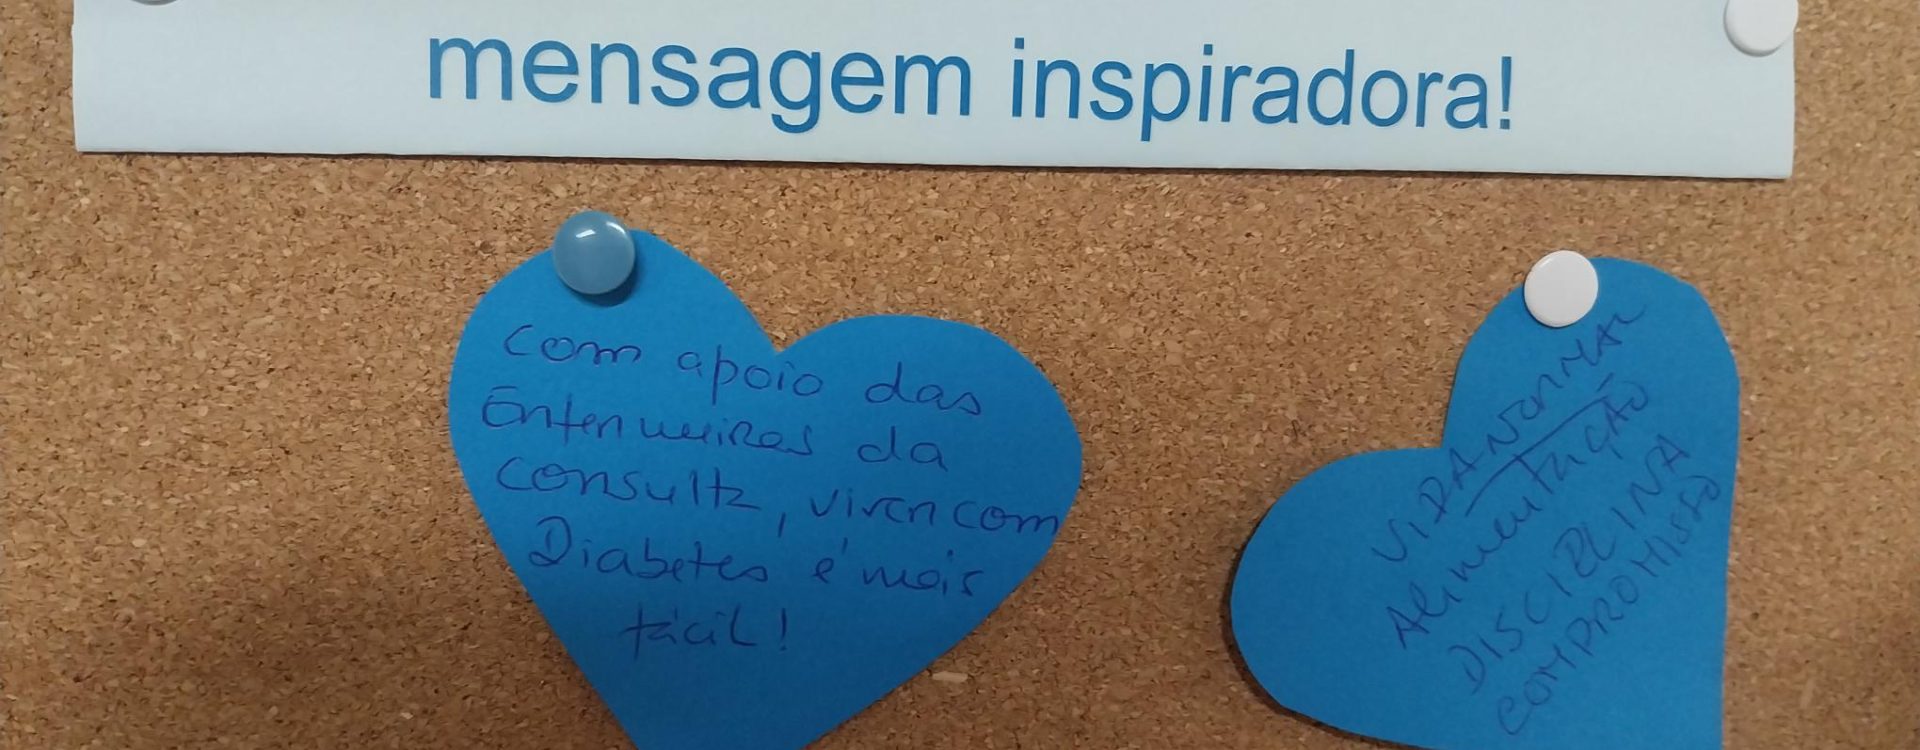 mensagem inspiradora!
Com apoio das
Enfermeiras da
consulta, viver com
Diabetes é mais
fácil!
VIDA NORMAL
Alimentação
DISCIPLINA
COMPROMISSO